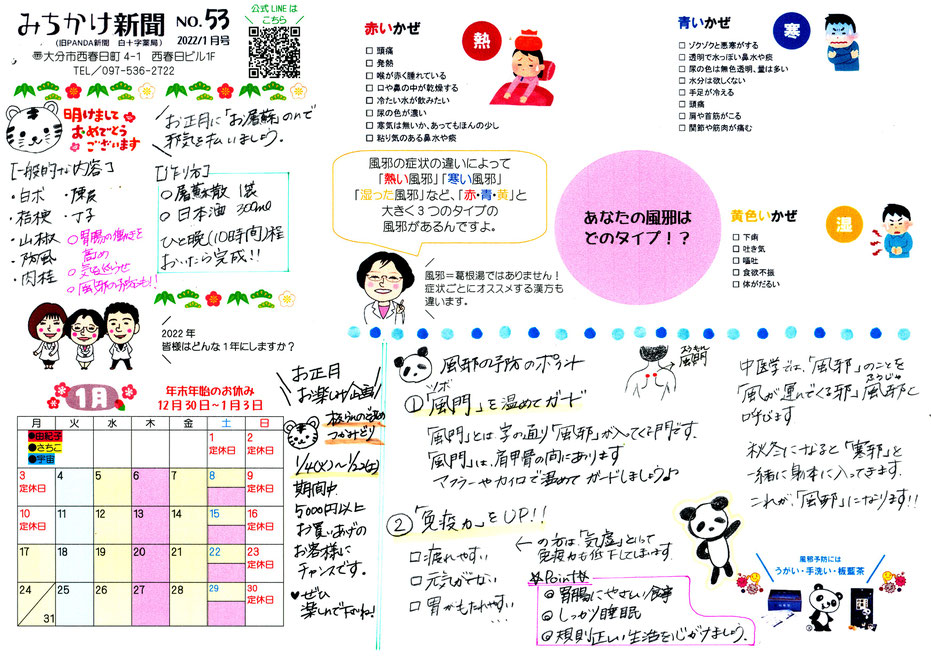 みちかけ新聞 NO.53
(旧PANDA新聞 白十字薬局) 2022/1月号
〠大分市西春日町4-1 西春日ビル1F
TEL/097-536-2722
公式LINEは
こちら
明けまして
おめでとう
ございます
お正月に「お屠蘇」のんで
邪気を払いましょう。
[一般的な内容]
・白朮 ・陳皮
・桔梗 ・丁子
・山椒
・防風
・肉桂
○胃腸の働きを
高め
○気を
○風邪の予防にも!!
[作り方]
○屠蘇散 1袋
○日本酒 300ml
ひと晩(10時間)程
おいたら完成!!
2022年
皆様はどんな1年にしますか?
赤いかぜ
熱
□ 頭痛
□ 発熱
□ 喉が赤く腫れている
□ 口や鼻の中が乾燥する
□ 冷たい水が飲みたい
□ 尿の色が濃い
□ 寒気は無いか、あってもほんの少し
□ 粘り気のある鼻水や痰
青いかぜ
寒
□ ゾクゾクと悪寒がする
□ 透明で水っぽい鼻水や痰
□ 尿の色は無色透明、量は多い
□ 水分は欲しくない
□ 手足が冷える
□ 頭痛
□ 肩や首筋がこる
□ 関節や筋肉が痛む
風邪の症状の違いによって
「熱い風邪」「寒い風邪」
「湿った風邪」など、「赤・青・黄」と
大きく3つのタイプの
風邪があるんですよ。
風邪=葛根湯ではありません!
症状ごとにオススメする漢方も
違います。
あなたの風邪は
どのタイプ!?
黄色いかぜ
湿
□ 下痢
□ 吐き気
□ 嘔吐
□ 食欲不振
□ 体がだるい
1月
年末年始のお休み
12月30日~1月3日
月 火 水 木 金 土 日
●由紀子
●さちこ
●宇宙
1 定休日 2 定休日
3 定休日 4 5 6 7 8 9 定休日
10 定休日 11 12 13 14 15 16 定休日
17 18 19 20 21 22 23 定休日
24/31 25 26 27 28 29 30 定休日
お正月
お楽しみ企画
つかみどり
1/4(火)~1/22(土)
期間中
5,000円以上
お買いあげの
お客様に
チャンスです。
♥ぜひ
楽しんで下さいね!
風邪の予防のポイント
ツボ
①「風門」を温めてガード
ふうもん
風門
「風門」とは字の通り「風邪」が入ってくる門です。
「風門」は、肩甲骨の間にあります
マフラーやカイロで温めてガードしましょう♪
②「免疫力」をUP!!
□疲れやすい
□元気がでない
□胃がもたれやすい
←の方は、「気虚」といって
免疫力も低下してしまいます。
☆Point☆
◎胃腸にやさしい食事
◎しっかり睡眠
◎規則正しい生活を心がけましょう。
中医学では、「風邪」のことを
「風が運んでくる邪」風邪と
ふうじゃ
呼びます
秋冬になると「寒邪」と
一緒に身体に入ってきます。
これが、「風邪」になります!!
風邪予防には
うがい・手洗い・板藍茶